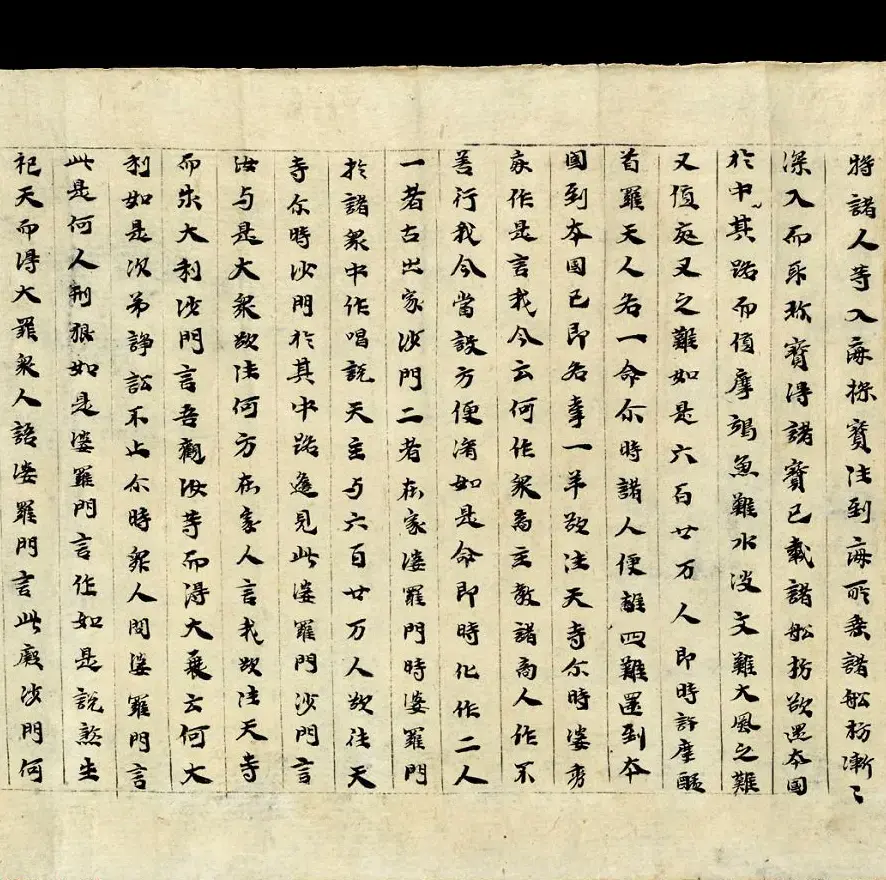 將諸人等入海採寶往到海所乘諸舩舫漸〻
深入而采珎寳得諸寳已載諸舩舫欲還本國
於中其路而值摩竭魚難水波之難大風之難
又值夜叉之難如是六百廿万人即時許摩醯
首羅天人各一命尒時諸人便離四難還到本
國到本國已即各牽一羊欲往天寺尒時婆秀
家作是言我今云何作衆啇主教諸啇人作不
善行我今當設方便濟如是命即時化作二人
一者古出家沙門二者在家婆羅門時婆羅門
於諸衆中作唱說天主与六百廿万人欲往天
寺尒時沙門於其中路遙見此婆羅門沙門言
汝与是大衆欲往何方在家人言我欲往天寺
而求大利沙門言吾觀汝等而得大衰云何大
利如是次弟諍訟不止尒時衆人問婆羅門言
此是何人形狠如是婆羅門言作如是說煞生
祀天而得大罪衆人語婆羅門言此癡沙門何